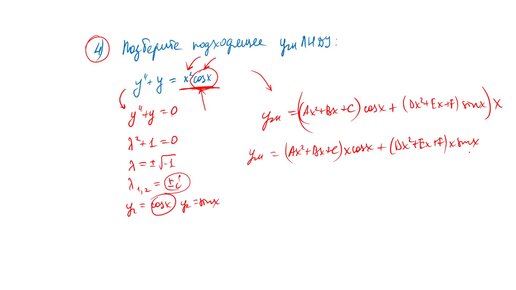 4) Подберите подходящее yчн ЛНДУ:
y'' + y = x² cosx
y'' + y = 0
λ² + 1 = 0
λ = ±√-1
λ₁,₂ = ±i
y₁ = cosx y₂ = sinx
yчн = ((Ax²+Bx+C) cosx + (Dx²+Ex+F) sinx) x
yчн = (Ax²+Bx+C) x cosx + (Dx²+Ex+F) x sinx